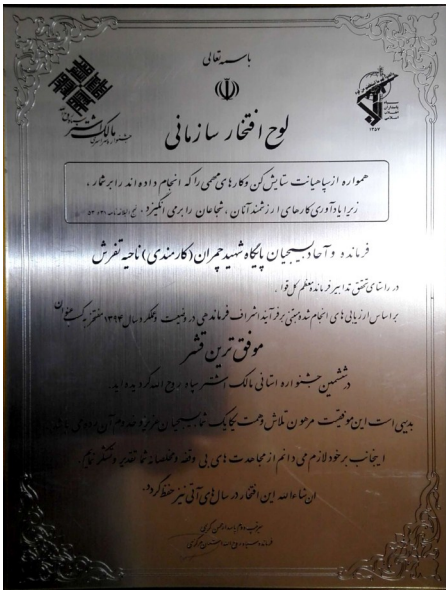 باسمه تعالی
لوح افتخار سازمانی
سپاه پاسداران انقلاب اسلامی
۱۳۵۷
مالک اشتر
همواره از سپاهیانت ستایش کن و کارهای مهمی را که انجام داده‌اند را بر شمار ،
زیرا یادآوری کارهای ارزشمند آنان ، شجاعان را برمی انگیزد .
فرمانده و آحاد بسیجیان پایگاه شهید چمران (کارمندی) ناحیه تفرش
در راستای تحقق تدابیر فرمانده معظم کل قوا ،
بر اساس ارزیابی های انجام شده مبتنی بر فرآیند اشراف فرماندهی در وضعیت و عملکرد سال ۱۳۹۴ مفتخر به کسب عنوان
موفق ترین قشر
در ششمین جشنواره استانی مالک اشتر سپاه روح الله گردیده اید.
بدیهی است این موفقیت مرهون تلاش و همت یکایک شما بسیجیان
اینجانب بر خود لازم می دانم از مجاهدت های بی وقفه و مخلصانه شما تقدیر و تشکر نمایم.
ان شاءالله این افتخار در سال های آتی نیز حفظ گردد.